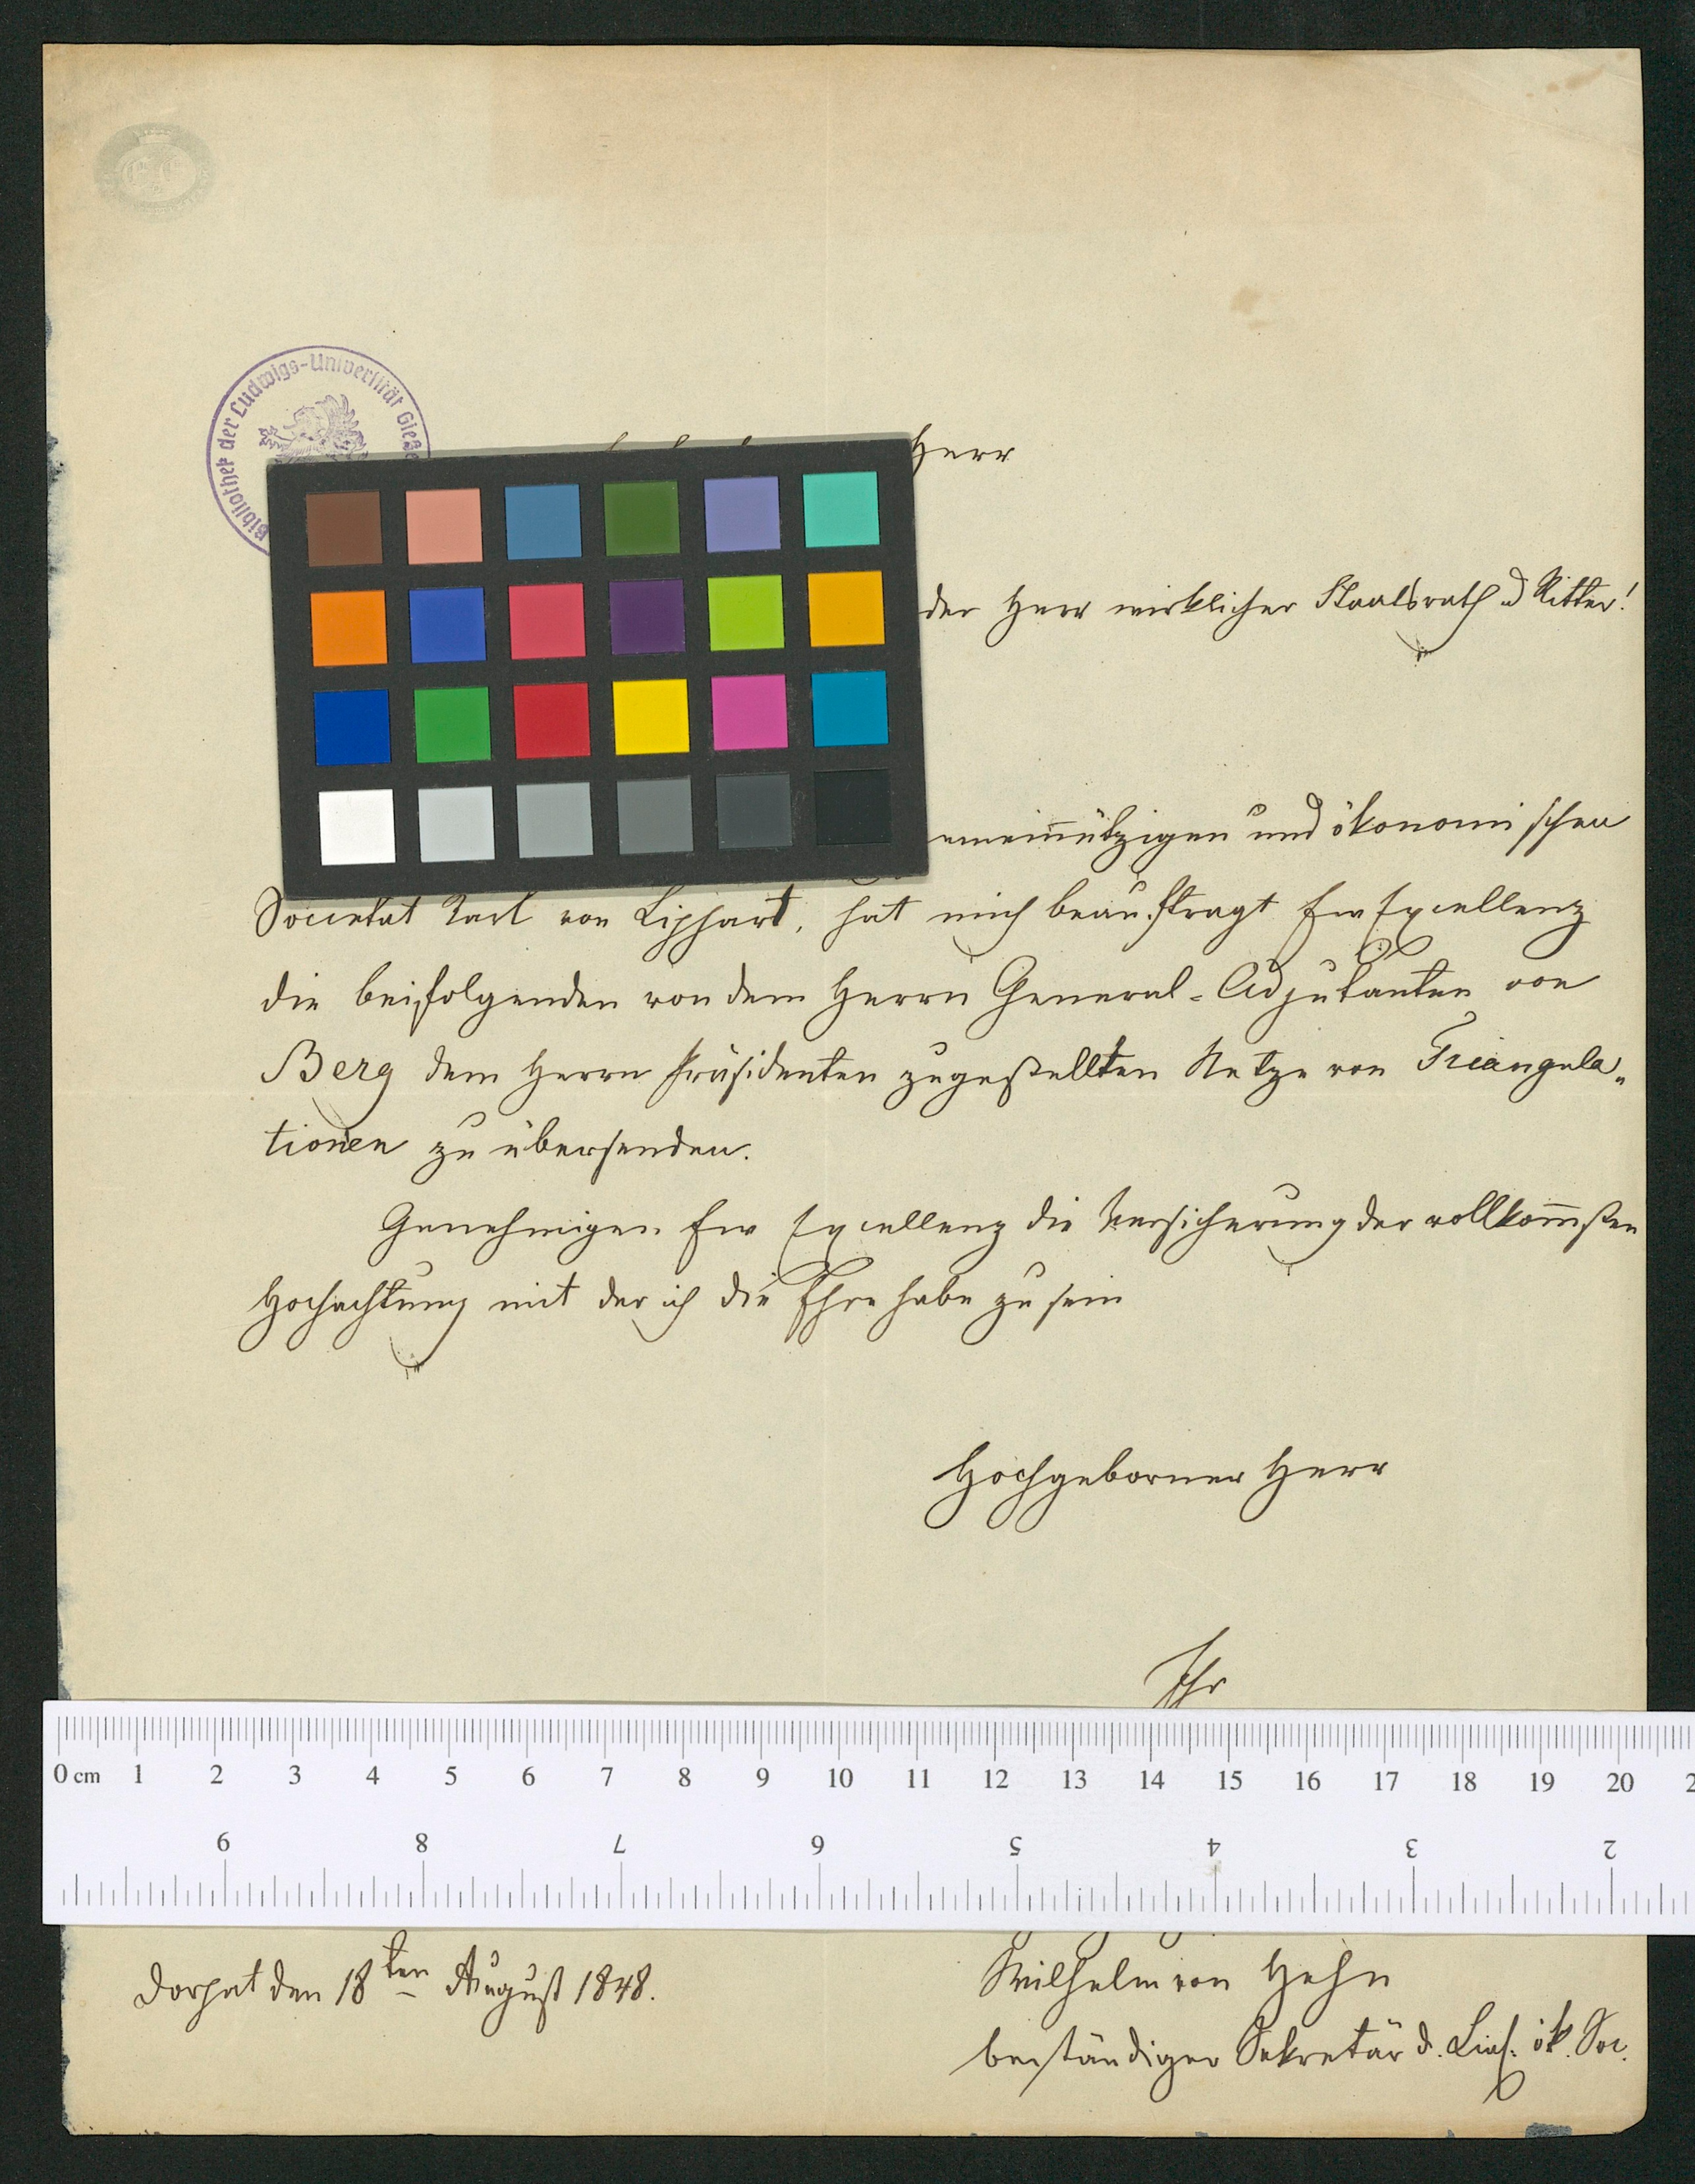 Bibliothek der Ludwigs-Universität Gieße
Herr
der Herr wirklicher Staatsrath u Ritter!
emeinnützigen und ökonomischen
Societät Carl von Liphart, hat mich beauftragt Ew Excellenz
die beifolgenden von dem Herrn General-Adjutanten von
Berg dem Herrn Präsidenten zugestellten Netze von Triangula„
tionen zu übersenden.
Genehmigen Ew Excellenz die Versicherung der vollkom̅sten
Hochachtung mit der ich die Ehre habe zu sein
Hochgeborner Herr
Ihr
0 cm 1 2 3 4 5 6 7 8 9 10 11 12 13 14 15 16 17 18 19 20 2
9 8 7 6 5 4 3 2
Wilhelm von Hehn
Dorpat den 18ten August 1848.
beständiger Sekretär d. Livl. ök. Soc.